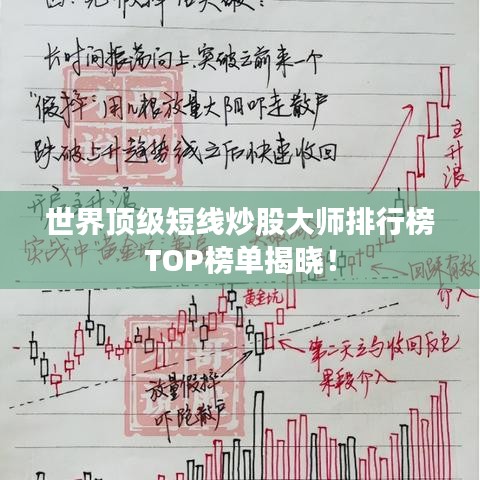 四：先假摔后突破！
长时间振荡向上，突破之前来一个
"假摔"用几根放量大阴吓走散户
跌破上升趋势线之后快速收回
开启主升浪
世界顶级短线炒股大师排行榜
TOP榜单揭晓！
实战中"黄金坑"
主升浪
回踩有效
介入
黄金坑
第二天立马收回反色
果段介入
放量假摔
吓跑散户